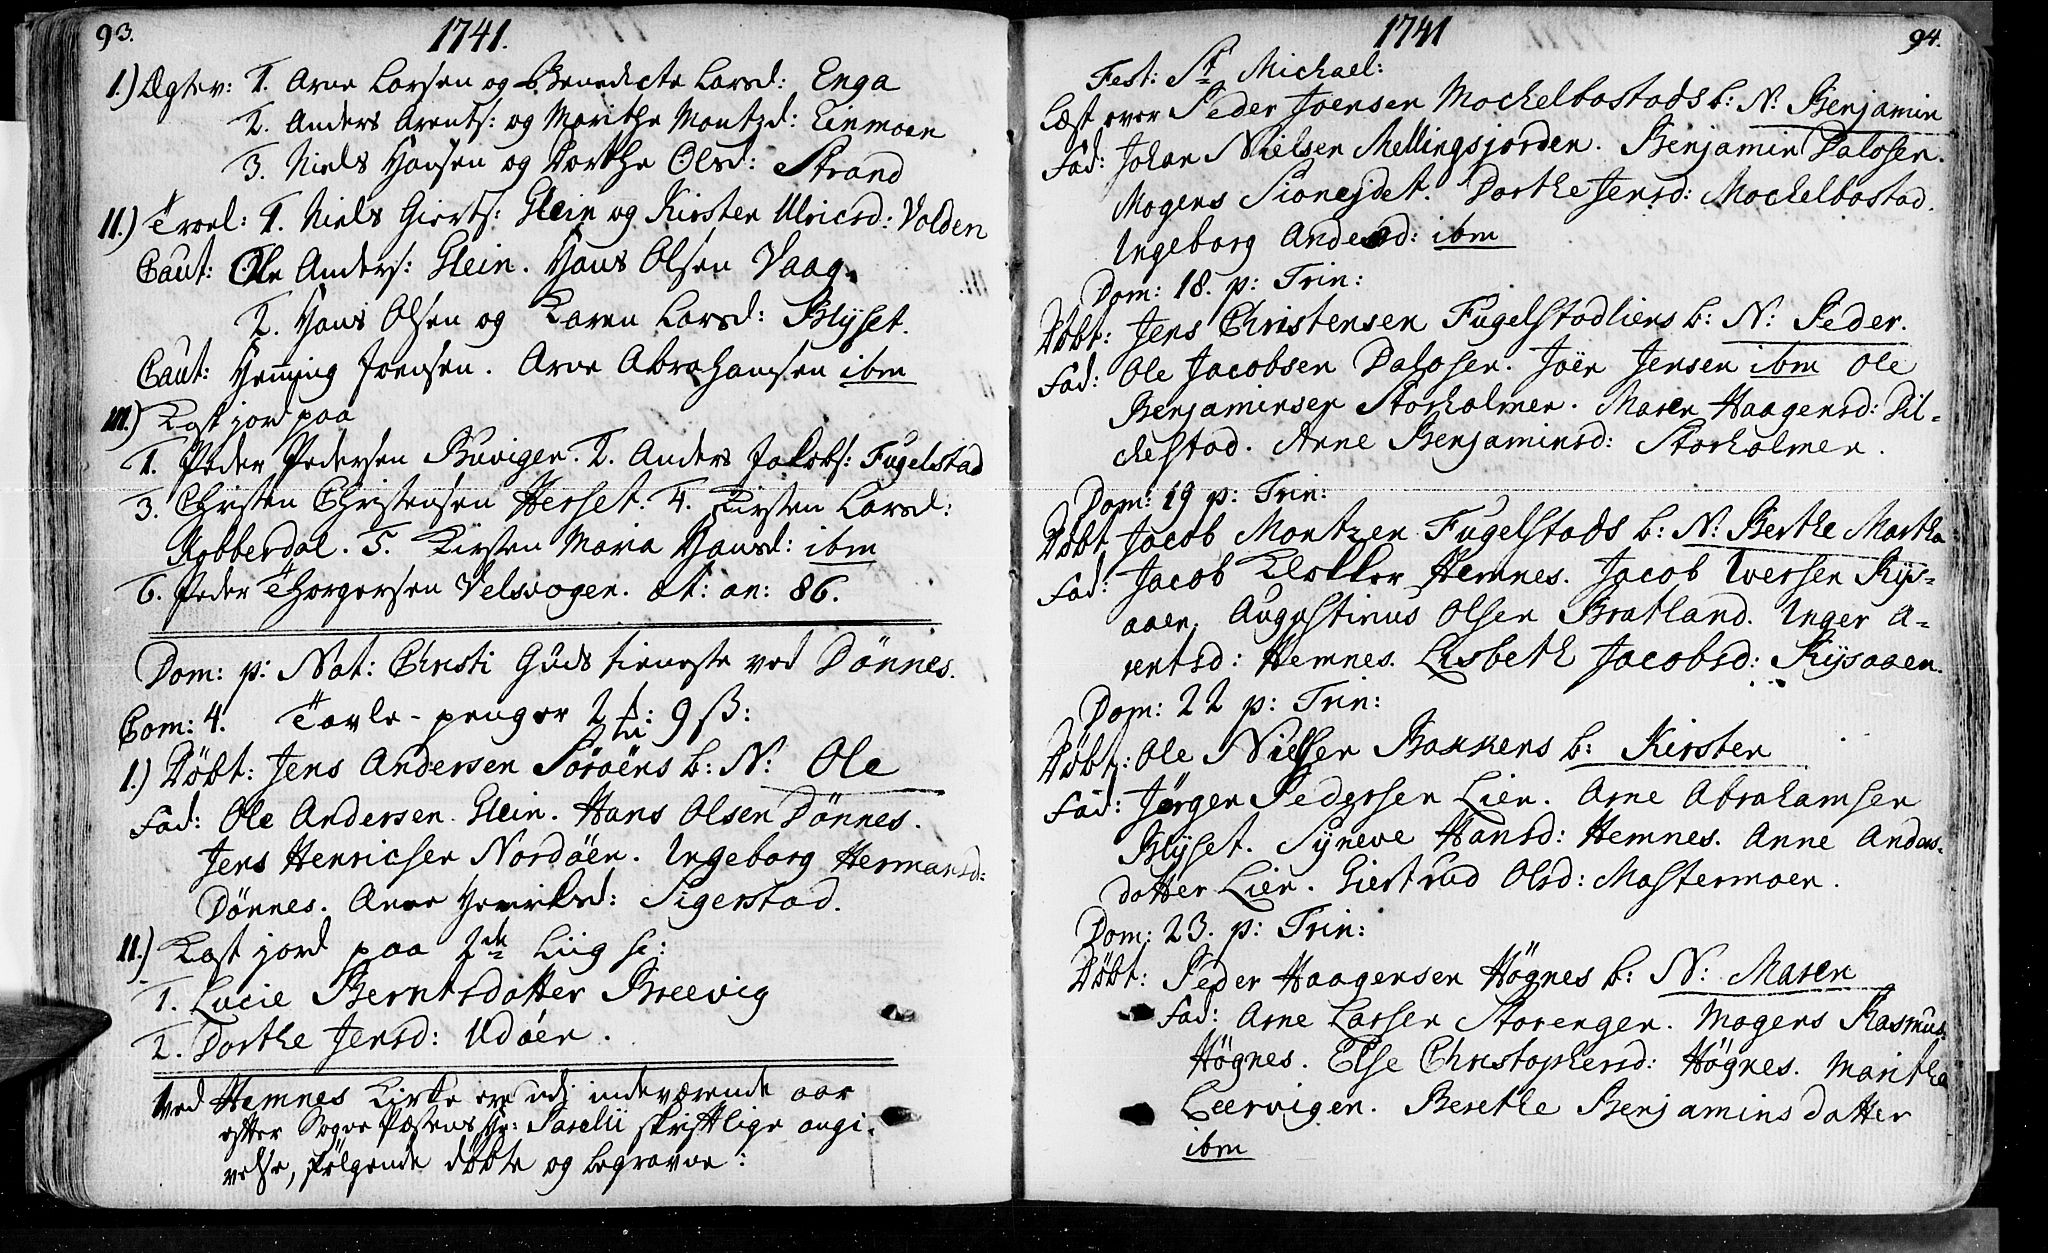 93.
1741.
1.) Ægtev: 1. Arne Larsen og Benedicte Larsd: Enga
2. Anders Arents: og Marithe Montzd: Einmoen
3. Niels Hansen og Dorthe Olsd: Strand
11.) Troel: 1. Niels Gierts: Glein og Kirsten Ulricsd: Volden
Caut: Ole Anders: Glein. Hans Olsen Vaag.
2. Hans Olsen og Karen Larsd: Blyset.
Caut: Henning Joensen. Arne Abrahamsen ibm
111.) Kast jord paa
1. Peder Pedersen Buvigen. 2. Anders Jakobs: Fugelstad
3. Christen Christensen Herset. 4. Kirsten Larsd:
Kobberdal. 5. Kirsten Maria Hansd: ibm
6. Peder Thorgersen Velsvogen. æt: an: 86.
Dom: p: Nat: Christi Guds tieneste ved Dönnes.
Com: 4. Tavle-penger 2 9 ß:
1.) Döbt: Jens Andersen Söröens b: N: Ole
Fad: Ole Andersen Glein. Hans Olsen Dönnes.
Jens Henrichsen Nordöen. Ingeborg Hermansd:
Dönnes. Anne Henriksd: Sigerstad.
11.) Kast jord paa 2de Liig sc:
1. Lucie Berntsdatter Breevig
2. Dorthe Jensd: Udöen.
Ved Hemnes Kirke ere udj indeværende aar
efter Sogne Præstens Hr: Parelii skriftlige angi-
velse, fölgende döbte og begravne:
1741
94.
Fest: St Michael:
Læst over Peder Joensen Mochelbostads b: N: Benjamin
Fad: Johan Nielsen Mellingsjorden. Benjamin Dalosen.
Mogens Dorthe Jensd: Mochelbostad.
Ingeborg Andersd: ibm
Dom: 18. p: Trin:
Döbt: Jens Christensen Fugelstadliens b: N: Peder.
Fad: Ole Jacobsen Dalosen. Joen Jensen ibm Ole
Benjaminsen Storholmen. Maren Haagensd: Dil-
chestad. Anne Benjaminsd: Storholmen.
Dom: 19 p: Trin:
Döbt Jacob Montzen Fugelstads b: N: Berthe Martha
Fad: Jacob Klokker Hemnes. Jacob Iversen Rys-
aaen. Augustinus Olsen Bratland. Inger A-
rentsd: Hemnes. Lisbeth Jacobsd: Rysaaen.
Dom: 22 p: Trin:
Döbt: Ole Nielsen Bakkens b: Kirsten
Fad: Jörgen Pedersen Lien. Arne Abrahamsen
Blyset. Syneve Hansd: Hemnes. Anne Anders-
datter Lien. Giertrud Olsd: Mastermoen.
Dom: 23. p: Trin:
Döbt: Peder Haagensen Högnes b: N: Maren
Fad: Arne Larsen Storengen. Mogens Rasmus:
Högnes. Else Christophersd: Högnes. Marithe
Leervigen. Berethe Benjaminsdatter
ibm